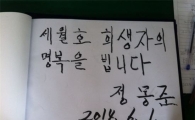 세월호 희생자의
명복을 빕니다
정몽준
2014. 6. 1.